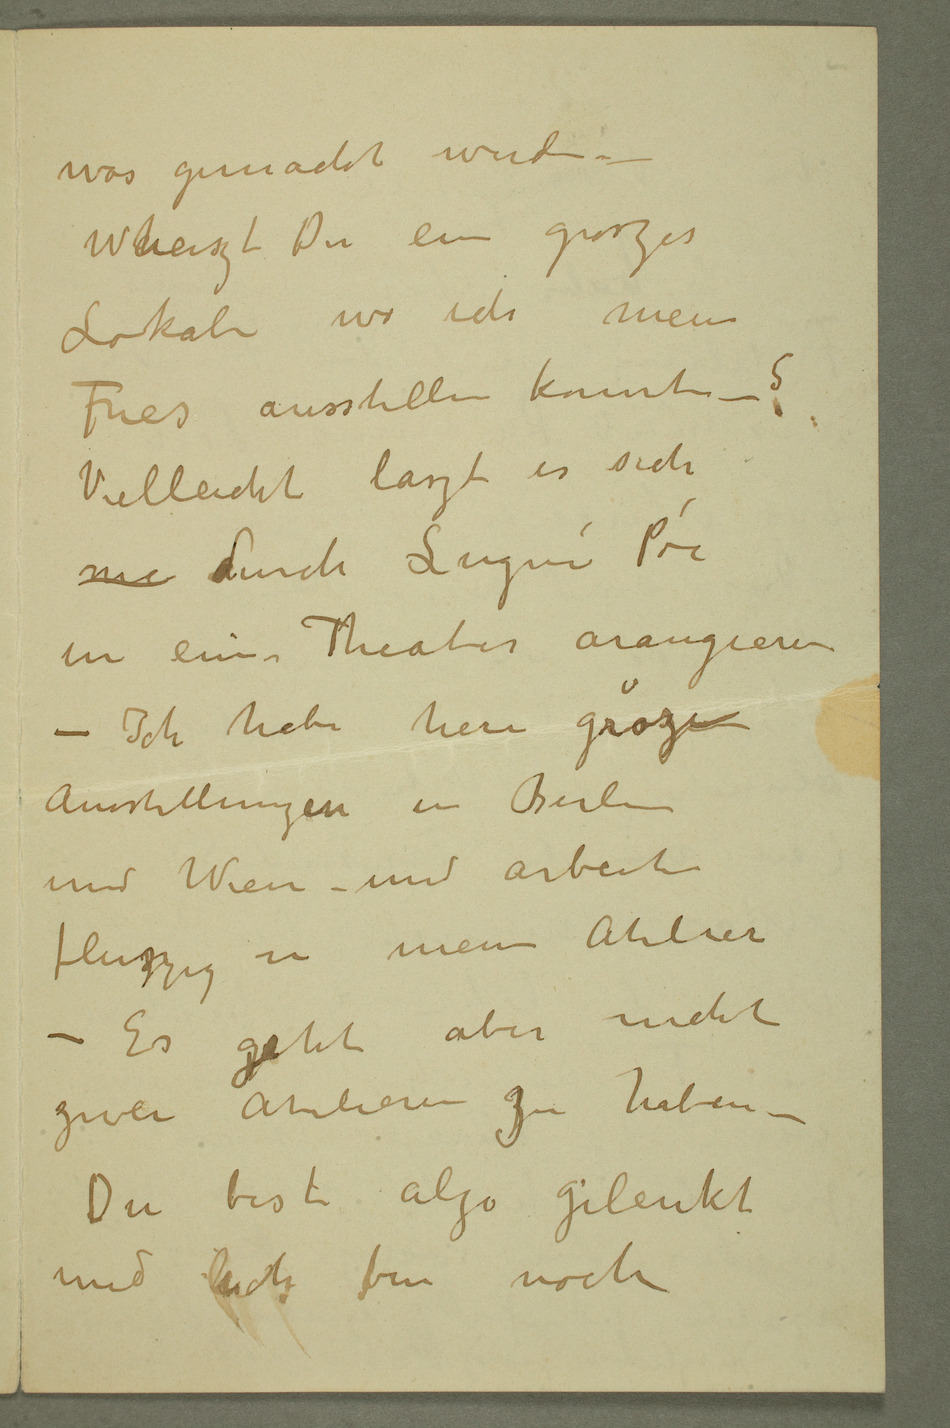 was gemacht werden –
Wheiszt Du ein groszes
Lokale wo ich mein
Fries ausstellen konnte – ?
Vielleicht laszt es sich
me durch Lugné Póe
in eine Theater arangieren
– Ich habe hier grösze
Ausstellungen in Berlin
und Wien – und arbeite
fleiszig in mein Atelier
– Es geht aber nicht
zwei Atelieren zu haben –
Du bist algo gelenkt
und ich bin noch